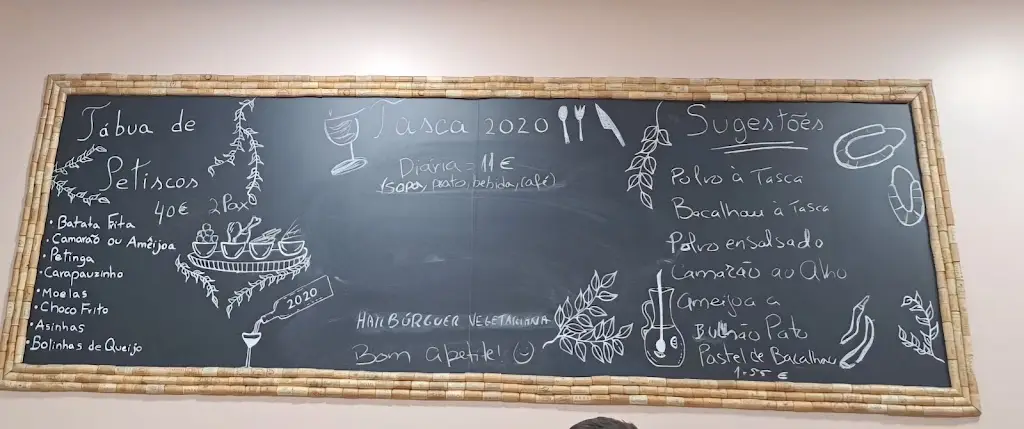 Tábua de
Petiscos
40€ 2Pax
• Batata Frita
• Camarão ou Amêijoa
• Petinga
• Carapauzinho
• Moelas
• Choco Frito
• Asinhas
• Bolinhas de Queijo
2020
Tasca 2020
Diária = 11€
(sopa, prato, bebida, café)
HAMBÚRGUER VEGETARIANA
Bom apetite!
Sugestões
Polvo à Tasca
Bacalhau à Tasca
Polvo ensalsado
Camarão ao Alho
Ameijoa a
Bulhão Pato
Pastel de Bacalhau
1.55 €